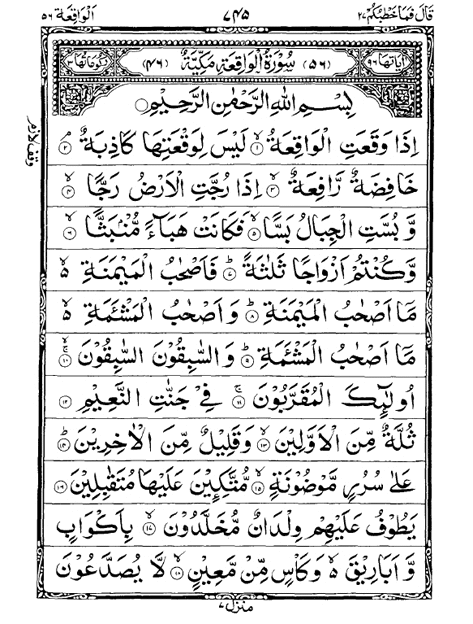 قَالَ فَمَا خَطْبُكُمْ ٢٧ ٧٤٥ اَلْوَاقِعَة ٥٦
اٰيَاتُهَا ٩٦ (٥٦) سُوْرَةُ الْوَاقِعَةِ مَكِّيَّةٌ (٤٦) رُكُوْعَاتُهَا ٣
بِسْمِ اللّٰهِ الرَّحْمٰنِ الرَّحِيْمِ
اِذَا وَقَعَتِ الْوَاقِعَةُ ١ لَيْسَ لِوَقْعَتِهَا كَاذِبَةٌ ٢
خَافِضَةٌ رَّافِعَةٌ ٣ اِذَا رُجَّتِ الْاَرْضُ رَجًّا ٤
وَّ بُسَّتِ الْجِبَالُ بَسًّا ٥ فَكَانَتْ هَبَآءً مُّنْۢبَثًّا ٦
وَّكُنْتُمْ اَزْوَاجًا ثَلٰثَةً ٧ فَاَصْحٰبُ الْمَيْمَنَةِ ۵
مَاۤ اَصْحٰبُ الْمَيْمَنَةِ ٨ وَ اَصْحٰبُ الْمَشْـَٔمَةِ ۵
مَاۤ اَصْحٰبُ الْمَشْـَٔمَةِ ٩ وَ السّٰبِقُوْنَ السّٰبِقُوْنَ ١٠
اُولٰٓئِكَ الْمُقَرَّبُوْنَ ١١ فِيْ جَنّٰتِ النَّعِيْمِ ١٢
ثُلَّةٌ مِّنَ الْاَوَّلِيْنَ ١٣ وَقَلِيْلٌ مِّنَ الْاٰخِرِيْنَ ١٤
عَلٰى سُرُرٍ مَّوْضُوْنَةٍ ١٥ مُّتَّكِـِٕيْنَ عَلَيْهَا مُتَقٰبِلِيْنَ ١٦
يَطُوْفُ عَلَيْهِمْ وِلْدَانٌ مُّخَلَّدُوْنَ ١٧ بِاَكْوَابٍ
وَّ اَبَارِيْقَ ۵ وَكَاْسٍ مِّنْ مَّعِيْنٍ ١٨ لَّا يُصَدَّعُوْنَ
منزل ٧